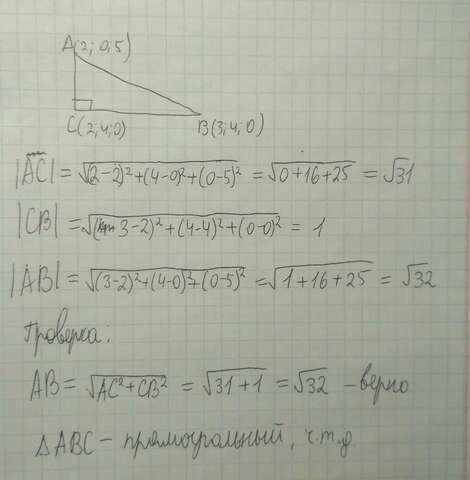 A(2; 0; 5)
C(2; 4; 0) B(3; 4; 0)
|AC| = √(2-2)²+(4-0)²+(0-5)² = √0+16+25 = √31
|CB| = √(3-2)²+(4-4)²+(0-0)² = 1
|AB| = √(3-2)²+(4-0)²+(0-5)² = √1+16+25 = √32
Проверка:
AB = √AC²+CB² = √31+1 = √32 - верно
△ABC - прямоугольный, ч.т.д.